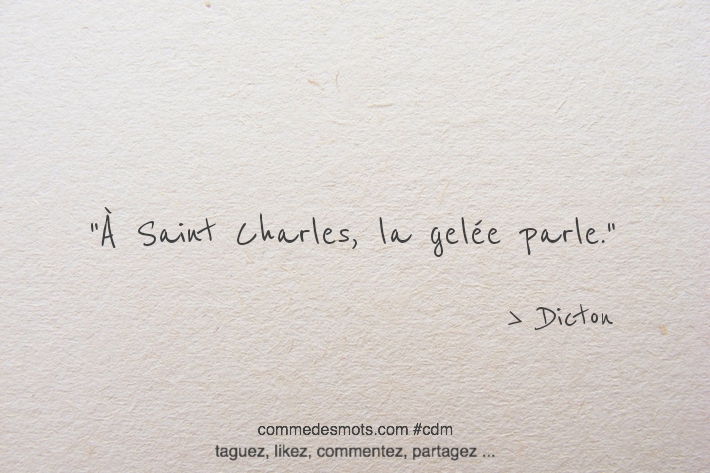 "À Saint Charles, la gelée parle."
> Dicton
commedesmots.com #cdm
taguez, likez, commentez, partagez ...